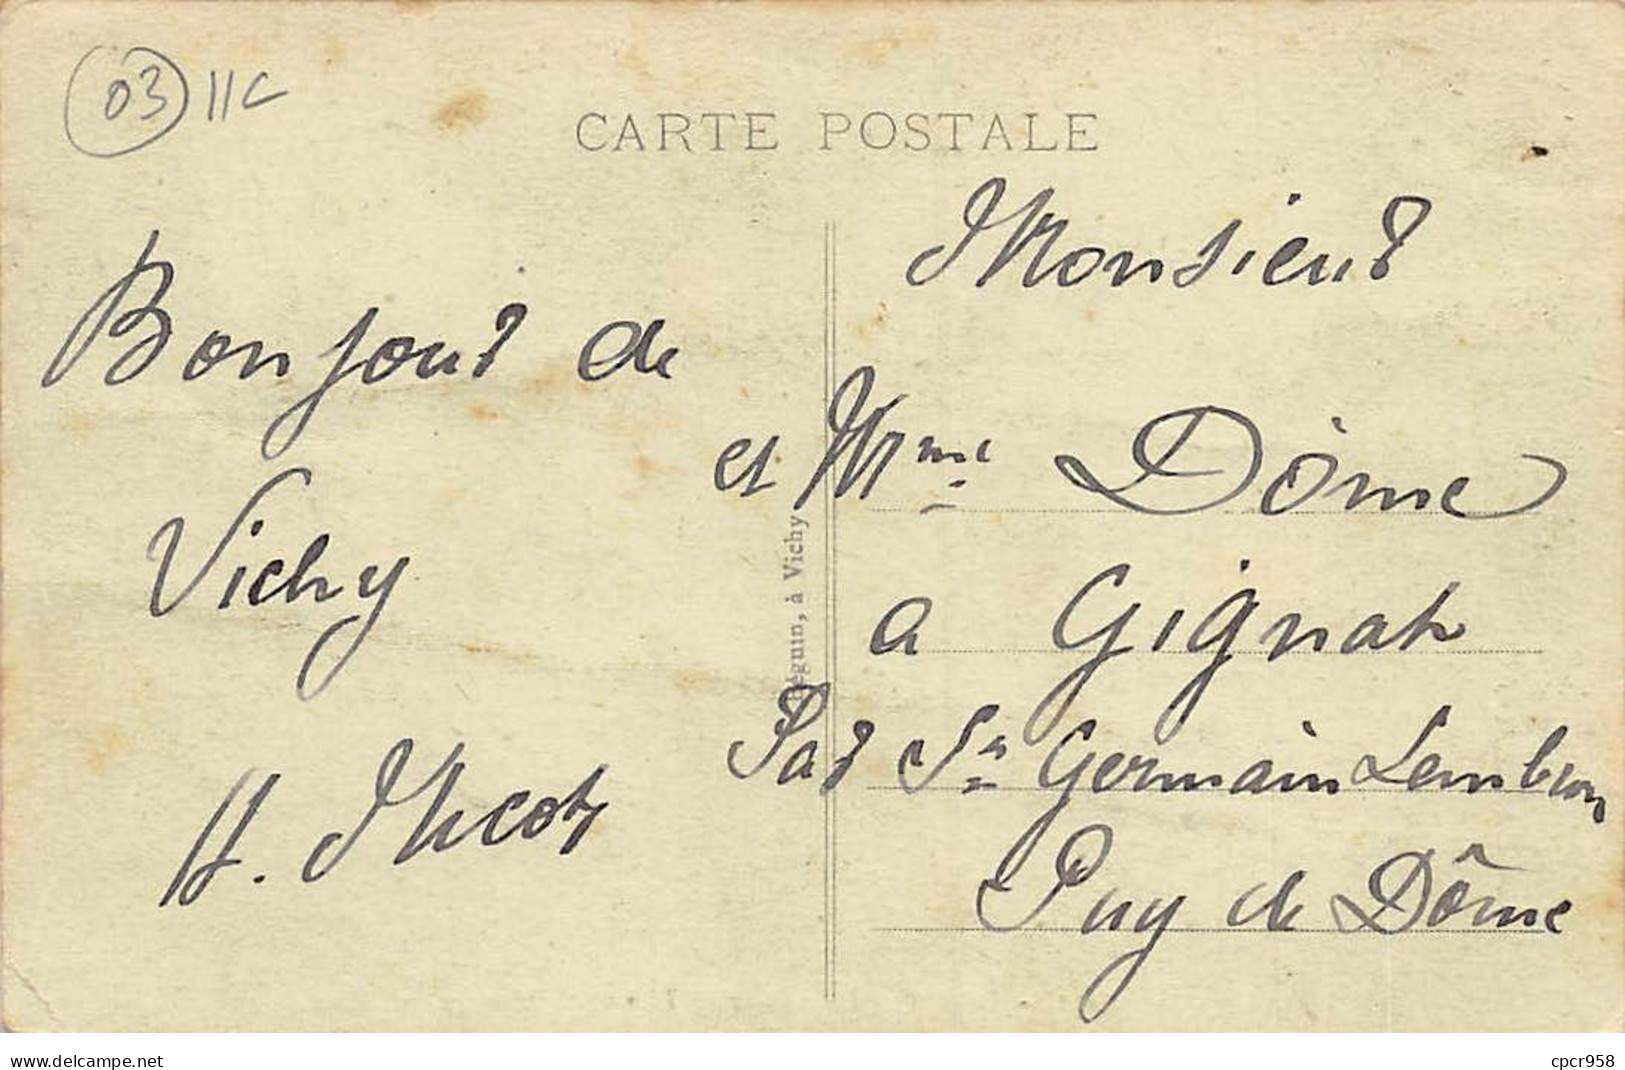 03 11C
CARTE POSTALE
Bonjour de
Vichy
H. Micot
Béguin, à Vichy
Monsieur
et Mme Dôme
a Gignat
Par St Germain Lembron
Puy de Dôme
www.delcampe.net
cpcr958